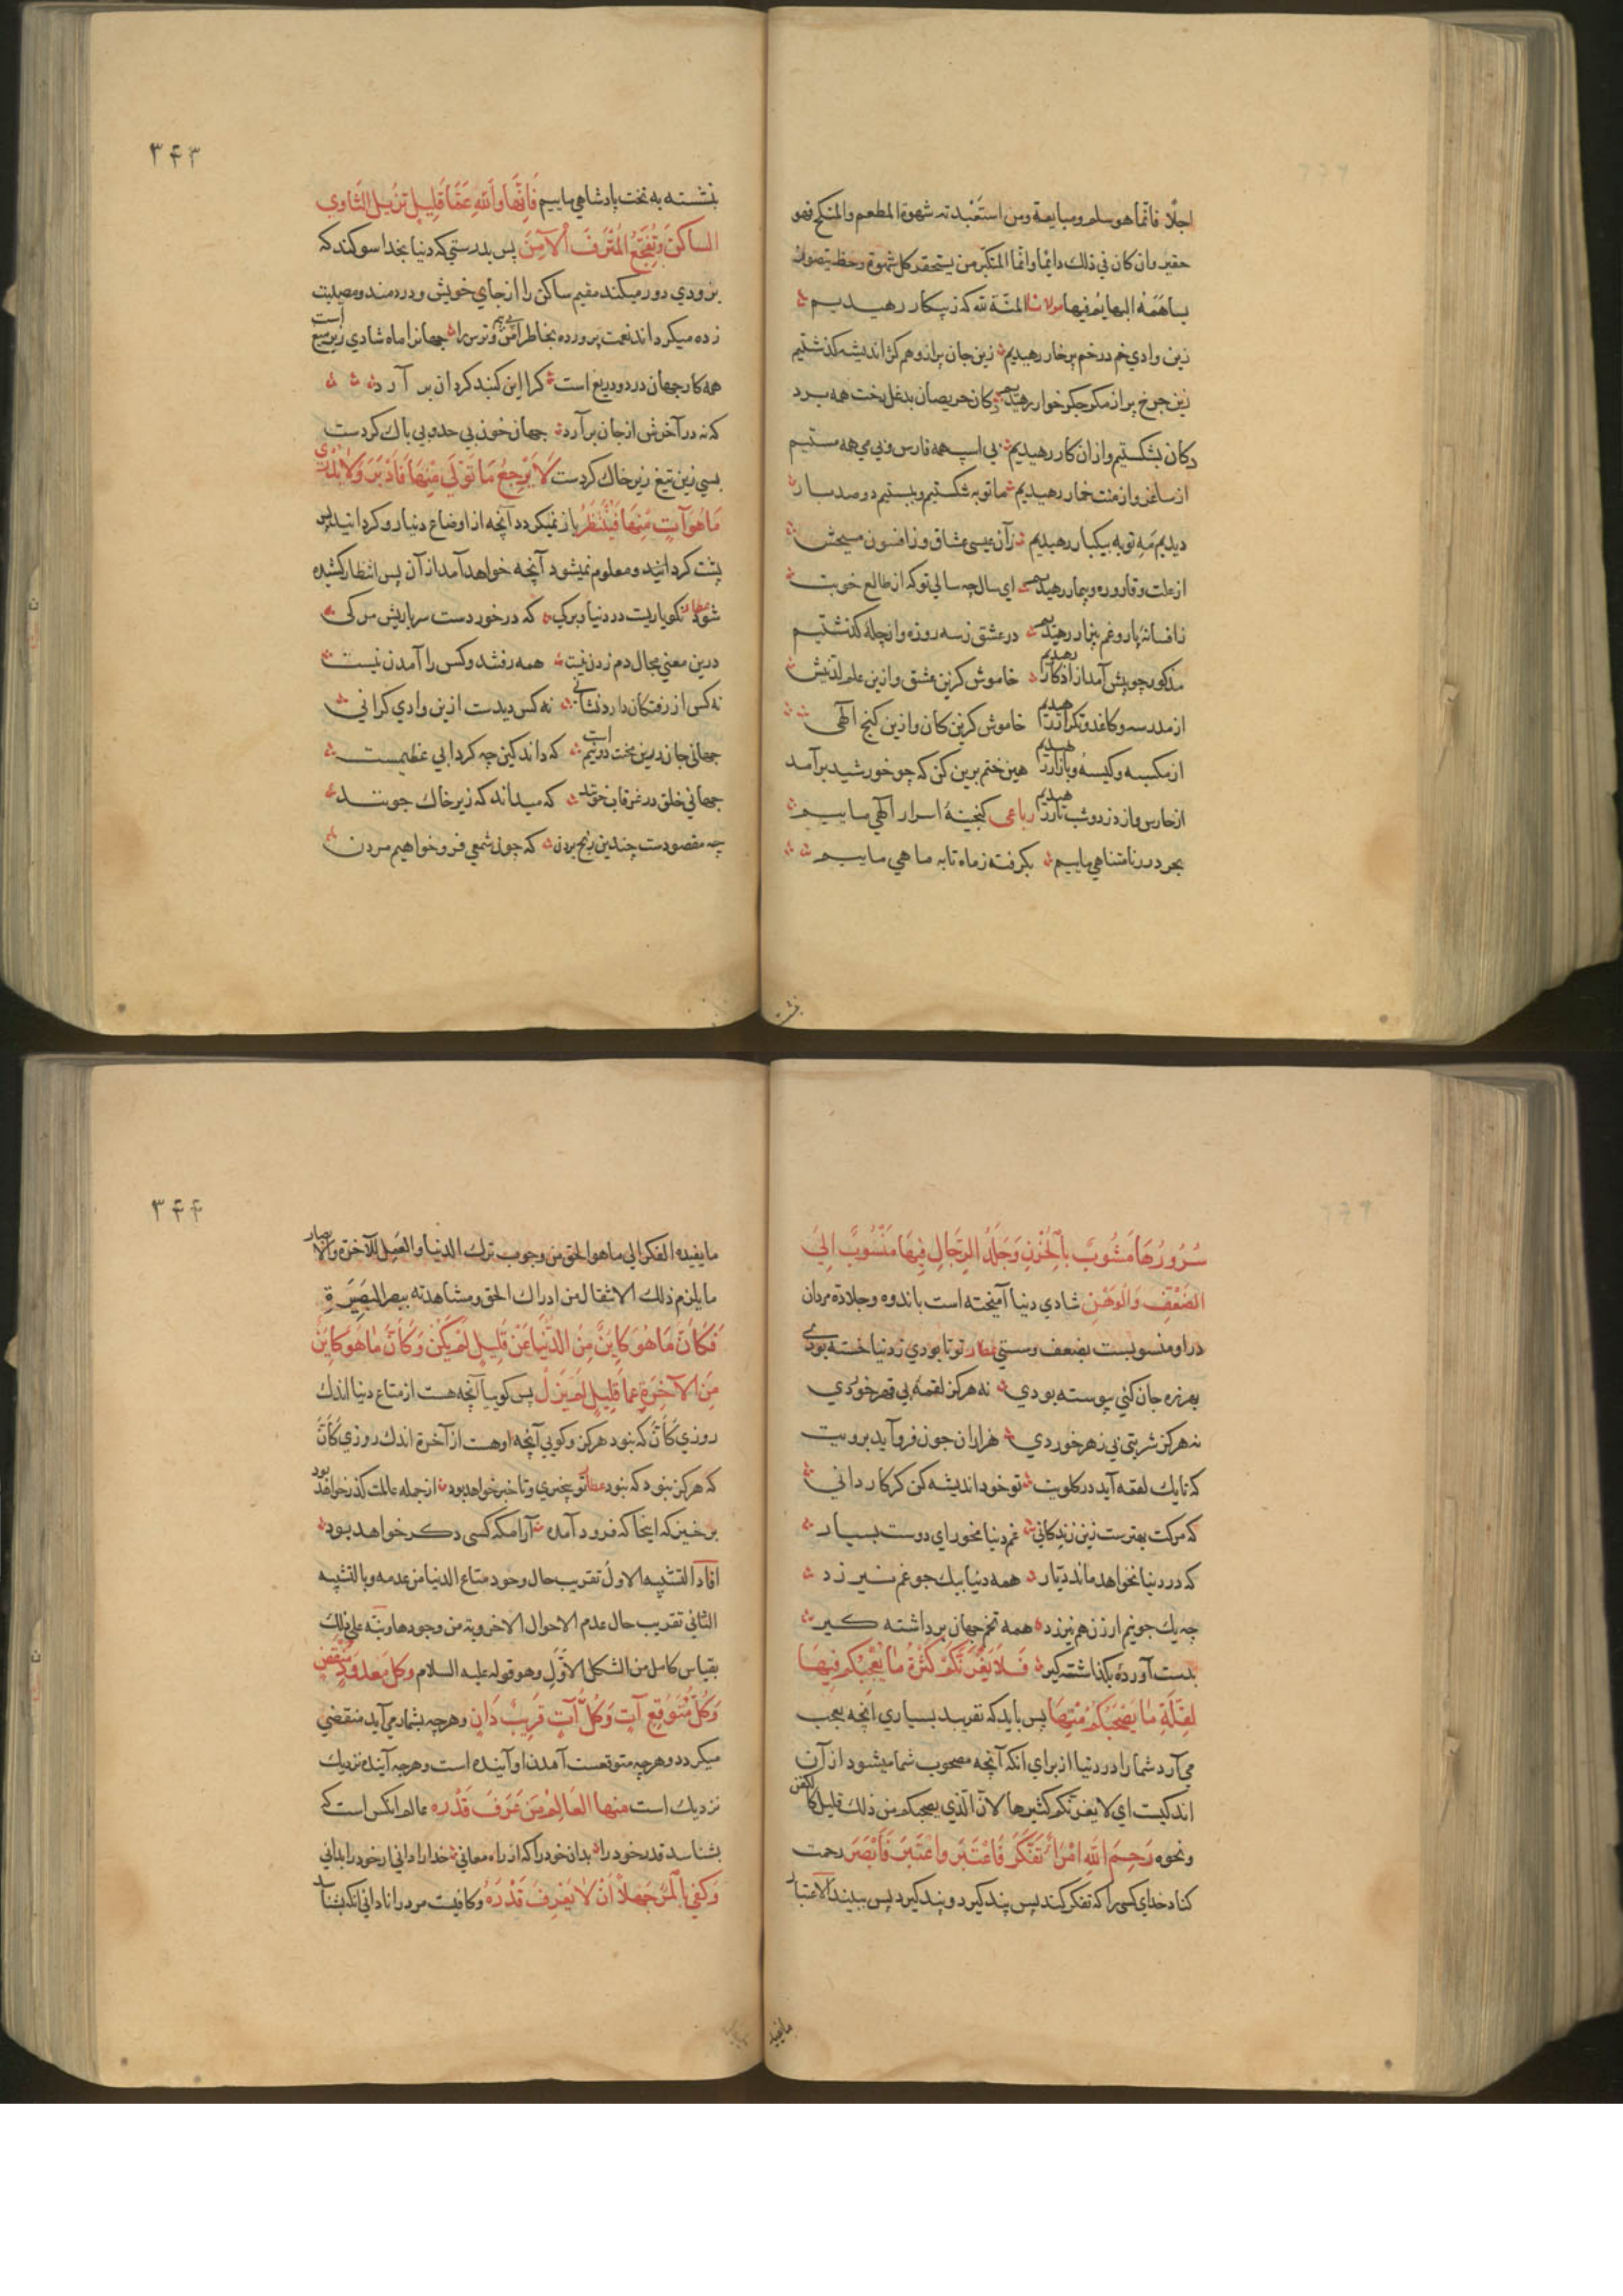 اجلّا فانّما هو سلم و مبايعة ومن استعبدته شهوة المطعم والمنكح فهو
حقير وان كان في ذلك دايما وانّما المتكبّر من يستحقر كل شهوة وحظ يتصور ان
يساهمه البهايم فيها مولانا المنّة لله كه ز پيكار رهيديم
زين وادي خم در خم پر خار رهيديم زين جان پر از وهم كژ انديشه گذشتيم
زين چرخ پر از مكر جگر خوار رهيديم دكان حريصان بدغل رخت همه برد
دكان بشكستيم و ازان كار رهيديم بي اسپ همه فارس و بي مي همه مستيم
از ساغر و از منت خمار رهيديم ما توبه شكستيم و ببستيم دو صد بار
ديديم مه توبه بيكبار رهيديم زان عيسى عشاق و ز افسون مسيحش
از علت و قاروره و بيمار رهيديم اي سال چه سالي تو كه از طالع خوبت
ز افسانه پار و غم پيرار رهيديم در عشق ز سه روزه و از چله گذشتيم
مذكور چو پيش آمد از اذكار رهيديم خاموش كزين عشق و ازين علم لدنيش
از مدرسه و كاغذ و تكرار رهيديم خاموش كزين كان و ازين گنج الهي
از مكسبه و كيسه و بازار رهيديم هين ختم برين كن كه چو خورشيد برآمد
از حارس و از دزد و شب تار رهيديم رباعى گنجينهٔ اسرار الهي ماييم
بحر درر نامتناهي ماييم بگرفته ز ماه تا به ماهي ماييم
نشسته
٣۴٣
بنشسته به تخت پادشاهي ماييم فَاِنَّهَا وَاللّهِ عَمَّا قَلِيلٍ تُزِيلُ الثَّاوِيَ
السَاكِنَ وَتُفْجِعُ المُتْرَفَ الْآمِنَ پس بدرستي كه دنيا بخدا سوگند كه
بزودي دور ميكند مقيم ساكن را از جاي خويش و دردمند و مصيبت
زده ميگرداند نعمت پرورده بخاطر امن و بي ترس را جهانرا ماه شادي زير ميغ است
همه كار جهان درد و دريغ است كرا اين گنبد گردان بر آرد
كه نه در آخرش از جان برآرد جهان خون بي حد و بي باك كردست
بسي زين تيغ زير خاك كردست لَا يَرْجِعُ مَا تَوَلَّى مِنْهَا فَاَدْبَرَ وَلَا يُدْرَى
مَا هُوَ آتٍ مِنْهَا فَيُنْتَظَرُ باز نميگردد آنچه از اوضاع دنيا رو گردانيد پس
پشت گردانيد و معلوم نميشود آنچه خواهد آمد از آن پس انتظار كشيده
شود عطار نكو ياريت در دنيا و برگي كه در خوردست سر باريش مرگي
درين معني مجال دم زدن نيست همه رفتند و كس را آمدن نيست
نه كس از رفتگان دارد نشاني نه كس ديدست ازين وادي كراني
جهاني جان درين محنت دو نيم است كه داند كين چه گردابي عظيمست
جهاني خلق در غرقاب خونند كه ميداند كه زير خاك چونند
چه مقصودست چندين رنج بردن كه چون شمعي فرو خواهيم مردن
سُرُورُهَا مَشُوبٌ بِالْحُزْنِ وَجَلَدُ الرِّجَالِ فِيهَا مَنْسُوبٌ اِلَى
الضَّعْفِ وَالْوَهْنِ شادي دنيا آميخته است باندوه و جلادت مردان
در او منسوبست بضعف و سستي عطار تو تا بودي ز دنيا خسته بودي
بهرزه جان كني پيوسته بودي نه هرگز لقمهٔ بي قهر خوردي
نه هرگز شربتي بي زهر خوردي هزاران خون فرو آيد برويت
كه تا يك لقمه آيد در گلويت تو خود انديشه كن گر كار داني
كه مرگت بهترست زين زندگاني غم دنيا مخور اي دوست بسيار
كه در دنيا نخواهد ماند ديار همه دنيا بيك جو غم نيرزد
چه يك جو نيم ارزن هم نيرزد همه تخم جهان برداشته گير
بدست آورده بگذاشته گير فَلَا يَغُرَّنَّكُمْ كَثْرَةُ مَا يُعْجِبُكُمْ فِيهَا
لِقِلَّةِ مَا يَصْحَبُكُمْ مِنْهَا پس بايد كه نفريبد بسياري آنچه بعجب
مي آرد شما را در دنيا از براي آنكه آنچه مصحوب شما ميشود از آن
اندكيست اي لا يغرنّكم كثيرها لانّ الّذي يصحبكم من ذلك قليل كالكفن
ونحوه رَحِمَ اللّهُ امْرَأً تَفَكَّرَ فَاعْتَبَرَ وَاعْتَبَرَ فَاَبْصَرَ رحمت
كناد خداي كسي را كه تفكر كند پس پند گيرد و پند گيرد پس ببيند الاعتبار
ما يفيد
٣۴۴
ما يفيده الفكر الي ما هو الحق من وجوب ترك الدنيا والعمل للآخرة والابصار
ما يلزم ذلك الانتقال من ادراك الحق ومشاهدته ببصر البصيرة
فَكَاَنَّ مَا هُوَ كَايِنٌ مِنَ الدُّنْيَا عَنْ قَلِيلٍ لَمْ يَكُنْ وَكَاَنَّ مَا هُوَ كَايِنٌ
مِنَ الْآخِرَةِ عَمَّا قَلِيلٍ لَمْ يَزَلْ پس گوييا آنچه هست از متاع دنيا اندك
روزي كَاَنَّ كه نبود هرگز و گويي آنچه او هست از آخرة اندك روزي كَاَنَّ
كه هرگز نبود كه نبود عطار تو بيخبري و تا خبر خواهد بود از جمله عالمت گذر خواهد بود
برخيز كه اينجا كه فرود آمده آرامگه كسي دگر خواهد بود
افاد التشبيه الاول تقريب حال وجود متاع الدنيا من عدمه وبالتشبيه
الثاني تقريب حال عدم الاحوال الاخروية من وجودها ونبّه على ذلك
بقياس كامل من الشكل الاوّل وهو قوله عليه السلام وَكُلُّ مَعْدُودٍ مُنْقَضٍ
وَكُلُّ مُتَوَقَّعٍ آتٍ وَكُلُّ آتٍ قَرِيبٌ دَانٍ و هرچه بشمار مي آيد منقضي
ميگردد و هرچه متوقعست آمدن او آينده است و هرچه آينده نزديك
نزديك است منها العَالِمُ مَنْ عَرَفَ قَدْرَهُ عالم انكس است كه
بشناسد قدر خود را بدان خود را كه از راه معاني خدا را داني ار خود را بداني
وَكَفَى بِالْمَرْءِ جَهْلاً اَنْ لَا يَعْرِفَ قَدْرَهُ و كافيست مرد را ناداني آنكه بشناسد